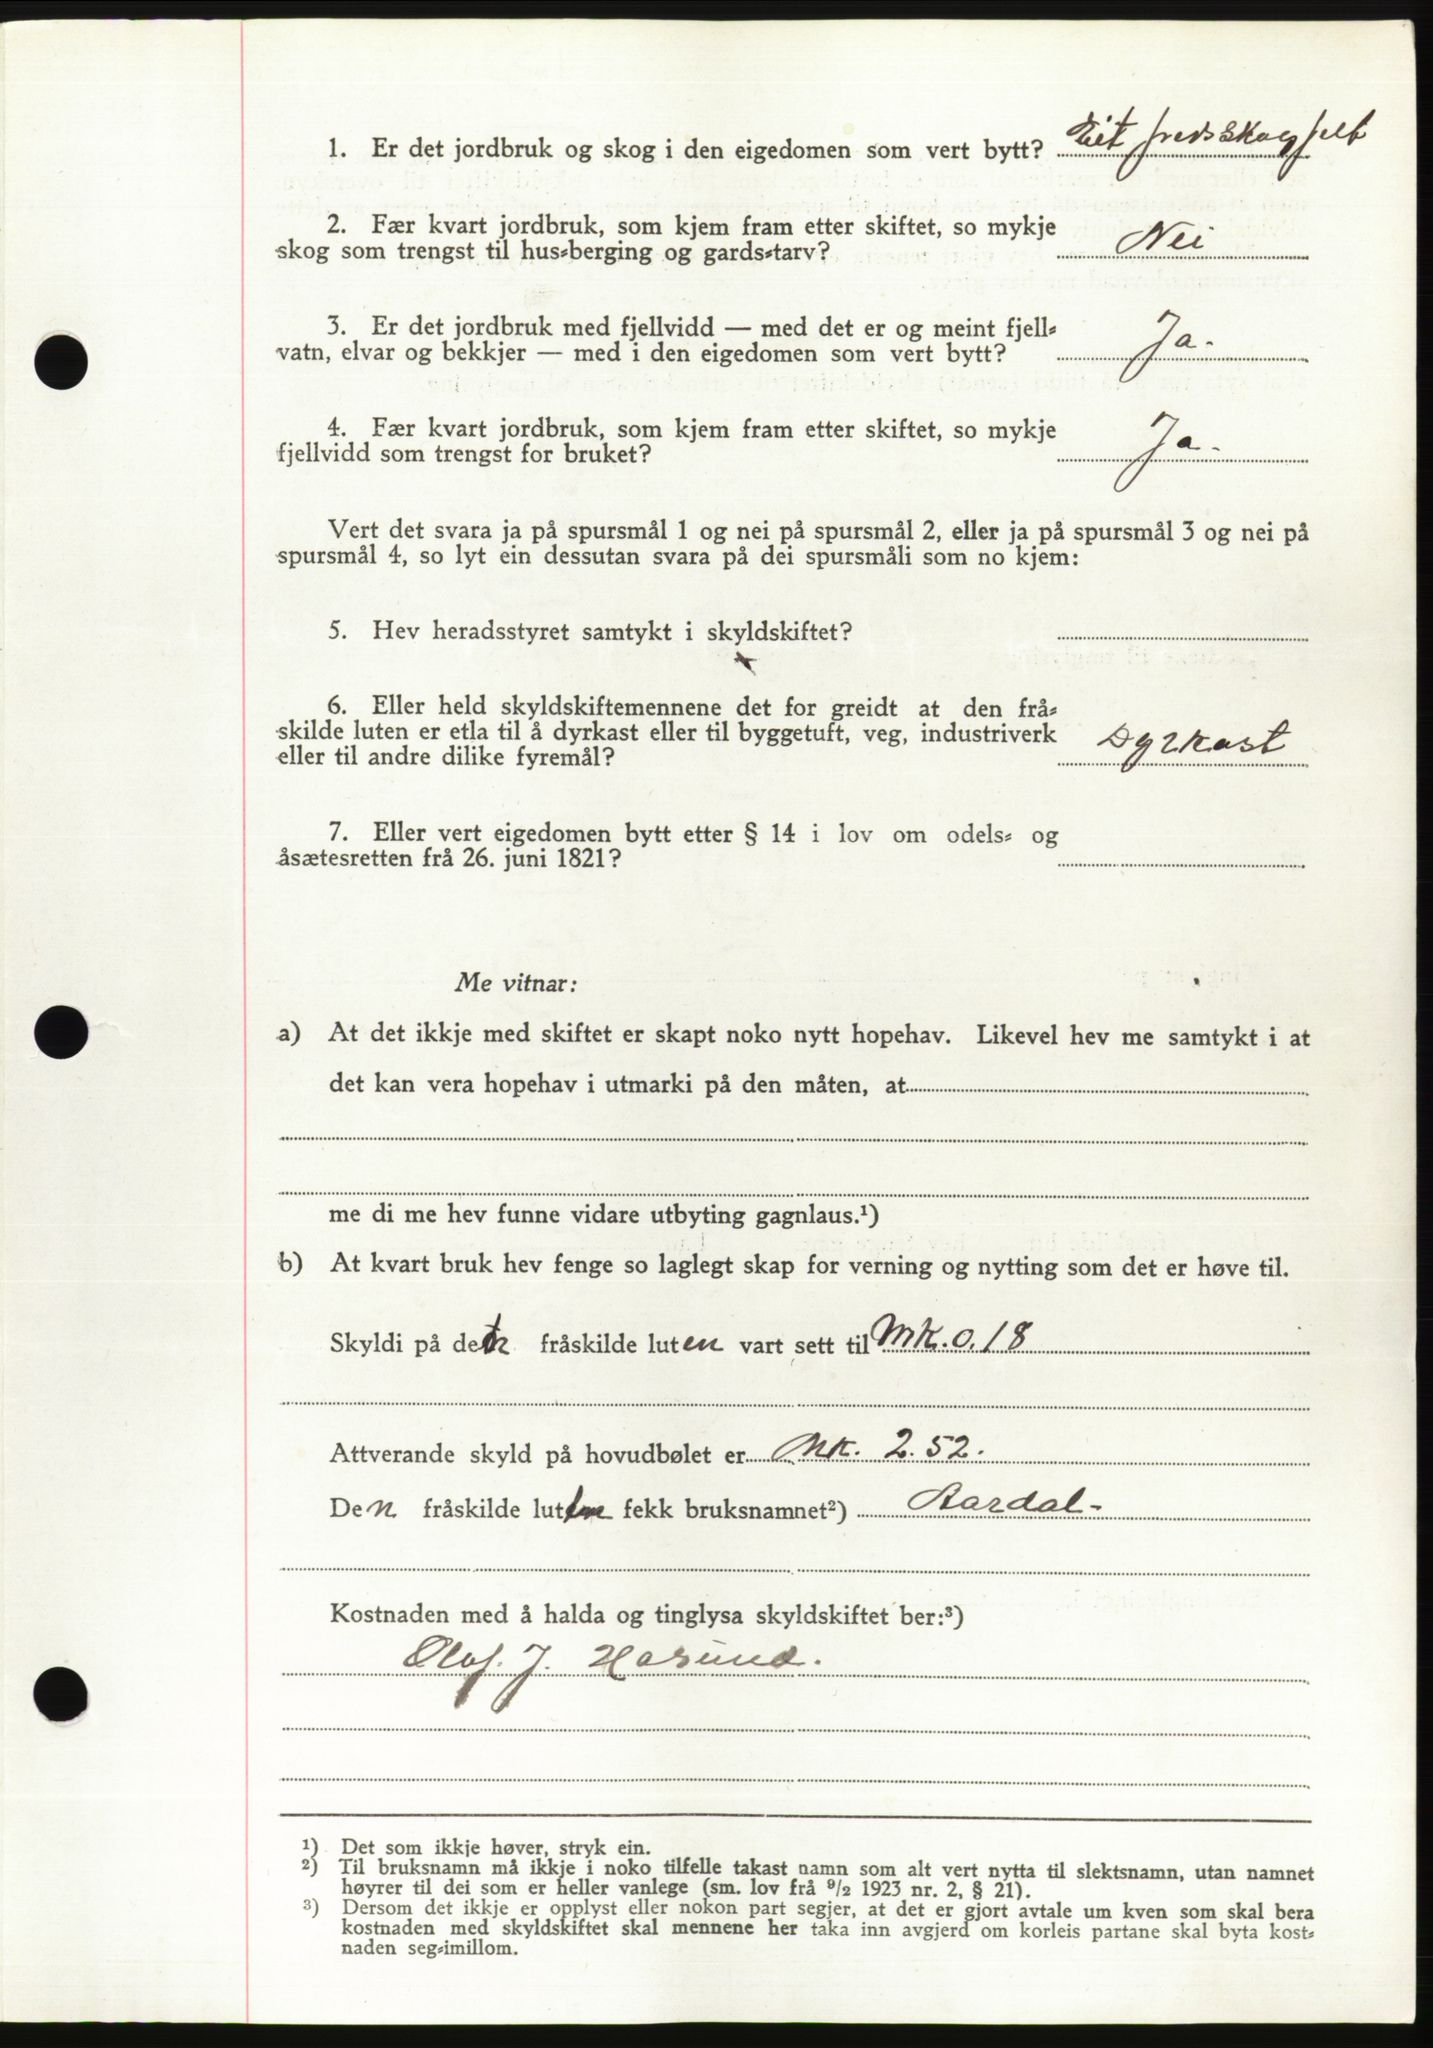 1. Er det jordbruk og skog i den eigedomen som vert bytt? Eit fredskogfelt
2. Fær kvart jordbruk, som kjem fram etter skiftet, so mykje
skog som trengst til hus-berging og gards-tarv? Nei
3. Er det jordbruk med fjellvidd — med det er og meint fjell-
vatn, elvar og bekkjer — med i den eigedomen som vert bytt? Ja.
4. Fær kvart jordbruk, som kjem fram etter skiftet, so mykje
fjellvidd som trengst for bruket? Ja.
Vert det svara ja på spursmål 1 og nei på spursmål 2, eller ja på spursmål 3 og nei på
spursmål 4, so lyt ein dessutan svara på dei spursmåli som no kjem:
5. Hev heradsstyret samtykt i skyldskiftet?
6. Eller held skyldskiftemennene det for greidt at den frå-
skilde luten er etla til å dyrkast eller til byggetuft, veg, industriverk
eller til andre dilike fyremål? Dyrkast
7. Eller vert eigedomen bytt etter § 14 i lov om odels- og
åsætesretten frå 26. juni 1821?
Me vitnar:
a) At det ikkje med skiftet er skapt noko nytt hopehav. Likevel hev me samtykt i at
det kan vera hopehav i utmarki på den måten, at
me di me hev funne vidare utbyting gagnlaus.¹)
b) At kvart bruk hev fenge so laglegt skap for verning og nytting som det er høve til.
Skyldi på den fråskilde luten vart sett til Mk. 0.18
Attverande skyld på hovudbølet er Mk. 2.52.
Den fråskilde luten fekk bruksnamnet²) Aardal-
Kostnaden med å halda og tinglysa skyldskiftet ber:³)
Olaf. J. Hasund.
¹) Det som ikkje høver, stryk ein.
²) Til bruksnamn må ikkje i noko tilfelle takast namn som alt vert nytta til slektsnamn, utan namnet
høyrer til dei som er heller vanlege (sm. lov frå 9/2 1923 nr. 2, § 21).
³) Dersom det ikkje er opplyst eller nokon part segjer, at det er gjort avtale um kven som skal bera
kostnaden med skyldskiftet skal mennene her taka inn avgjerd om korleis partane skal byta kost-
naden seg-imillom.